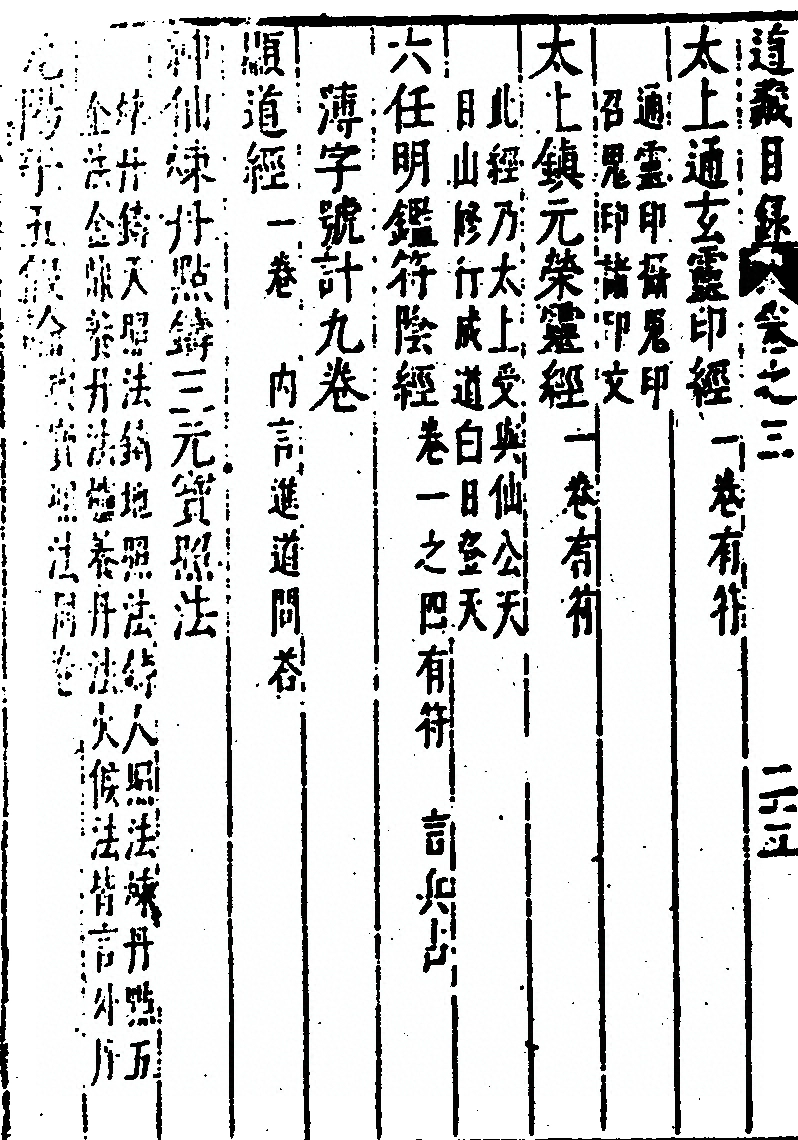 道藏目錄卷之三 二六五
太上通玄靈印經 一卷有符
通靈印攝鬼印
召鬼印諸印文
太上鎮元榮靈經 一卷有符
此經乃太上受與仙公天
日山修行成道白日登天
六任明鑑符陰經 卷一之四有符 言兵占
薄字號計九卷
顯道經 一卷 內言進道問荅
神仙煉丹點鑄三元寶照法
煉丹鑄天照法鑄地照法鑄人照法煉丹點五
金法金鼎養丹法爐養丹法火候法皆言外丹
元陽子五假論 與寶照法同卷